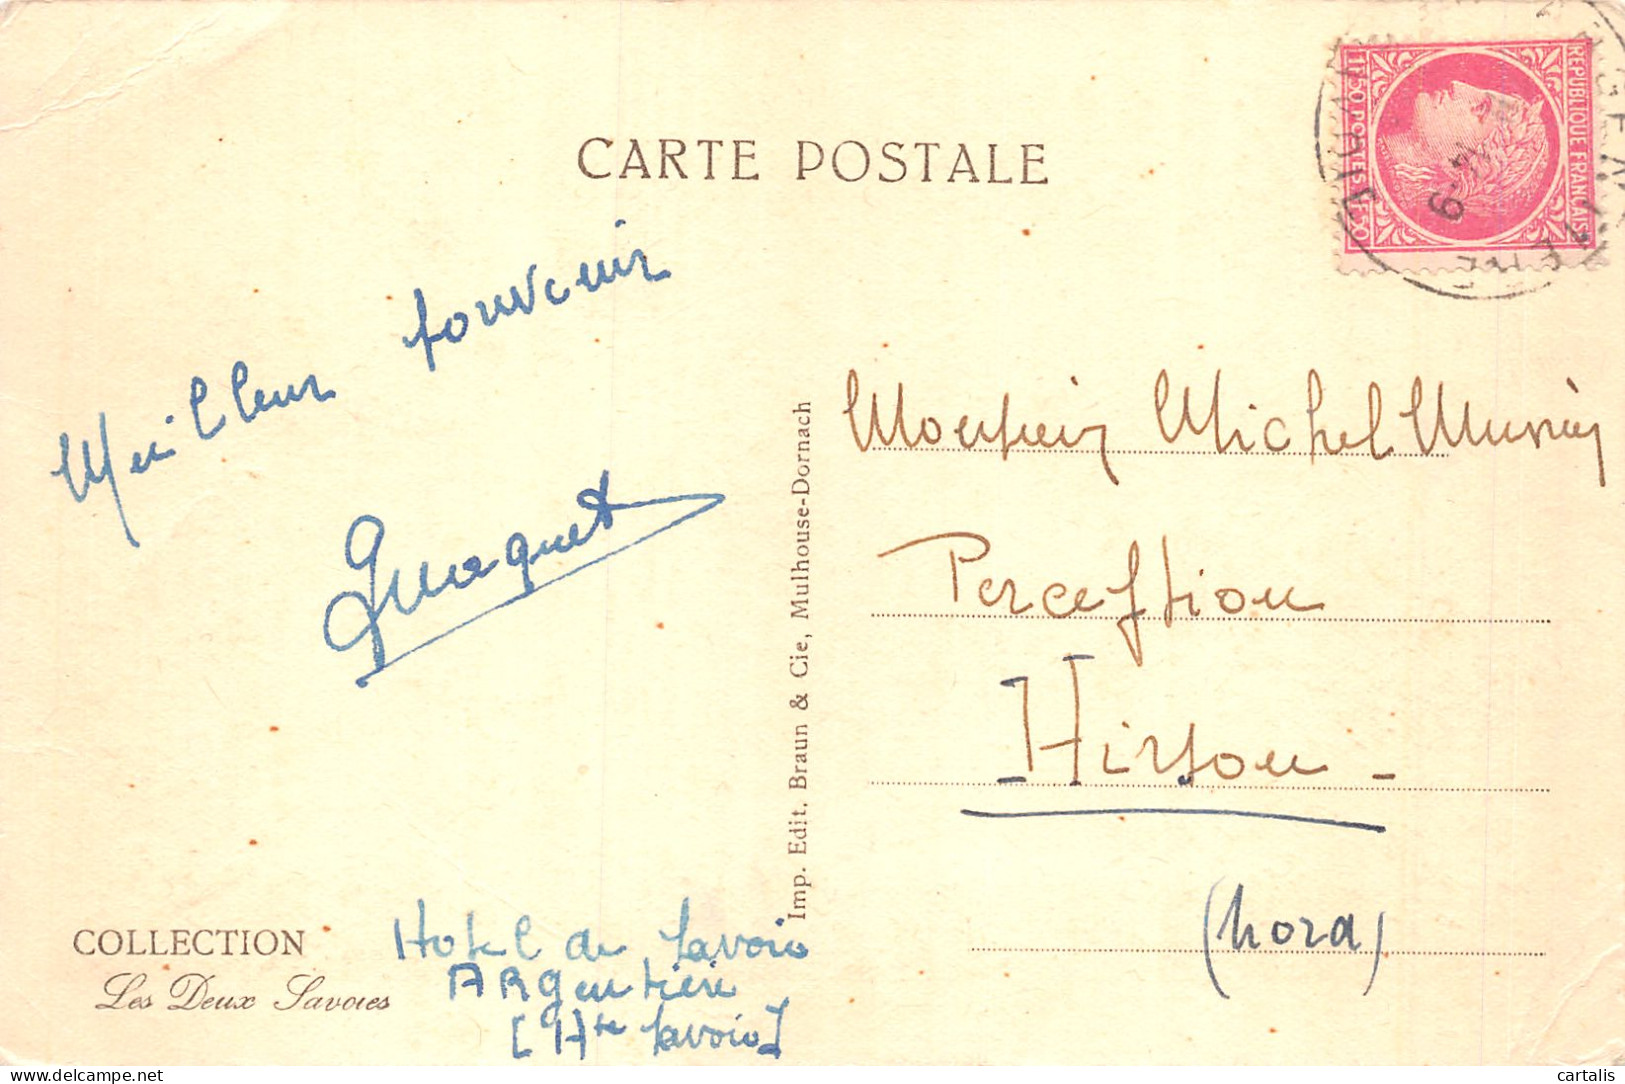 CARTE POSTALE
REPUBLIQUE FRANÇAISE
1F50 POSTES 1F50
Meilleur souvenir
Imp. Edit. Braun & Cie, Mulhouse-Dornach
Monsieur Michel
Perception
Hirson -
(Nord)
COLLECTION
Les Deux Savoies
Hotel de Savoie
ARgentière
[Hte Savoie]
delcampe.net
cartalis